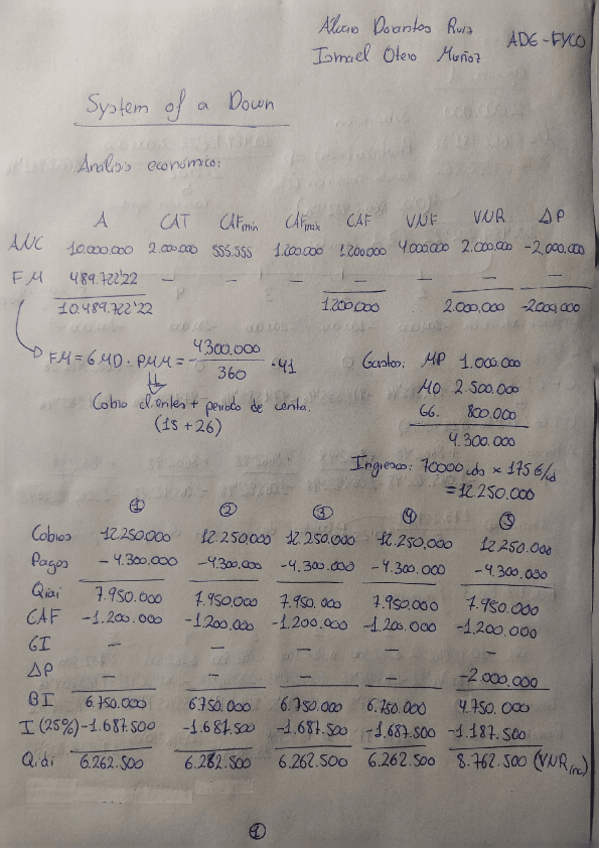 Álvaro Dorantes Ruiz
Ismael Otero Muñoz
ADE-FYCO
System of a Down
Análisis económico:
A CAT CAFmin CAFmax CAF VNF VNR ΔP
ANC 10.000.000 2.000.000 555.555 1.200.000 1.200.000 4.000.000 2.000.000 -2.000.000
FM 489.722'22 — — — — — — —
10.489.722'22 1.200.000 2.000.000 -2.000.000
FM = GMD · PMM = 4300.000 / 360 · 41
Cobro clientes + periodo de venta.
(15 + 26)
Gastos: MP 1.000.000
MO 2.500.000
GG. 800.000
4.300.000
Ingresos: 70000 uds × 175€/ud
= 12.250.000
① ② ③ ④ ⑤
Cobros 12.250.000 12.250.000 12.250.000 12.250.000 12.250.000
Pagos -4.300.000 -4.300.000 -4.300.000 -4.300.000 -4.300.000
Qiai 7.950.000 7.950.000 7.950.000 7.950.000 7.950.000
CAF -1.200.000 -1.200.000 -1.200.000 -1.200.000 -1.200.000
GI — — — — —
ΔP — — — — -2.000.000
BI 6.750.000 6.750.000 6.750.000 6.750.000 4.750.000
I (25%) -1.687.500 -1.687.500 -1.687.500 -1.687.500 -1.187.500
Qidi 6.262.500 6.262.500 6.262.500 6.262.500 8.762.500 (VNR inc)
①